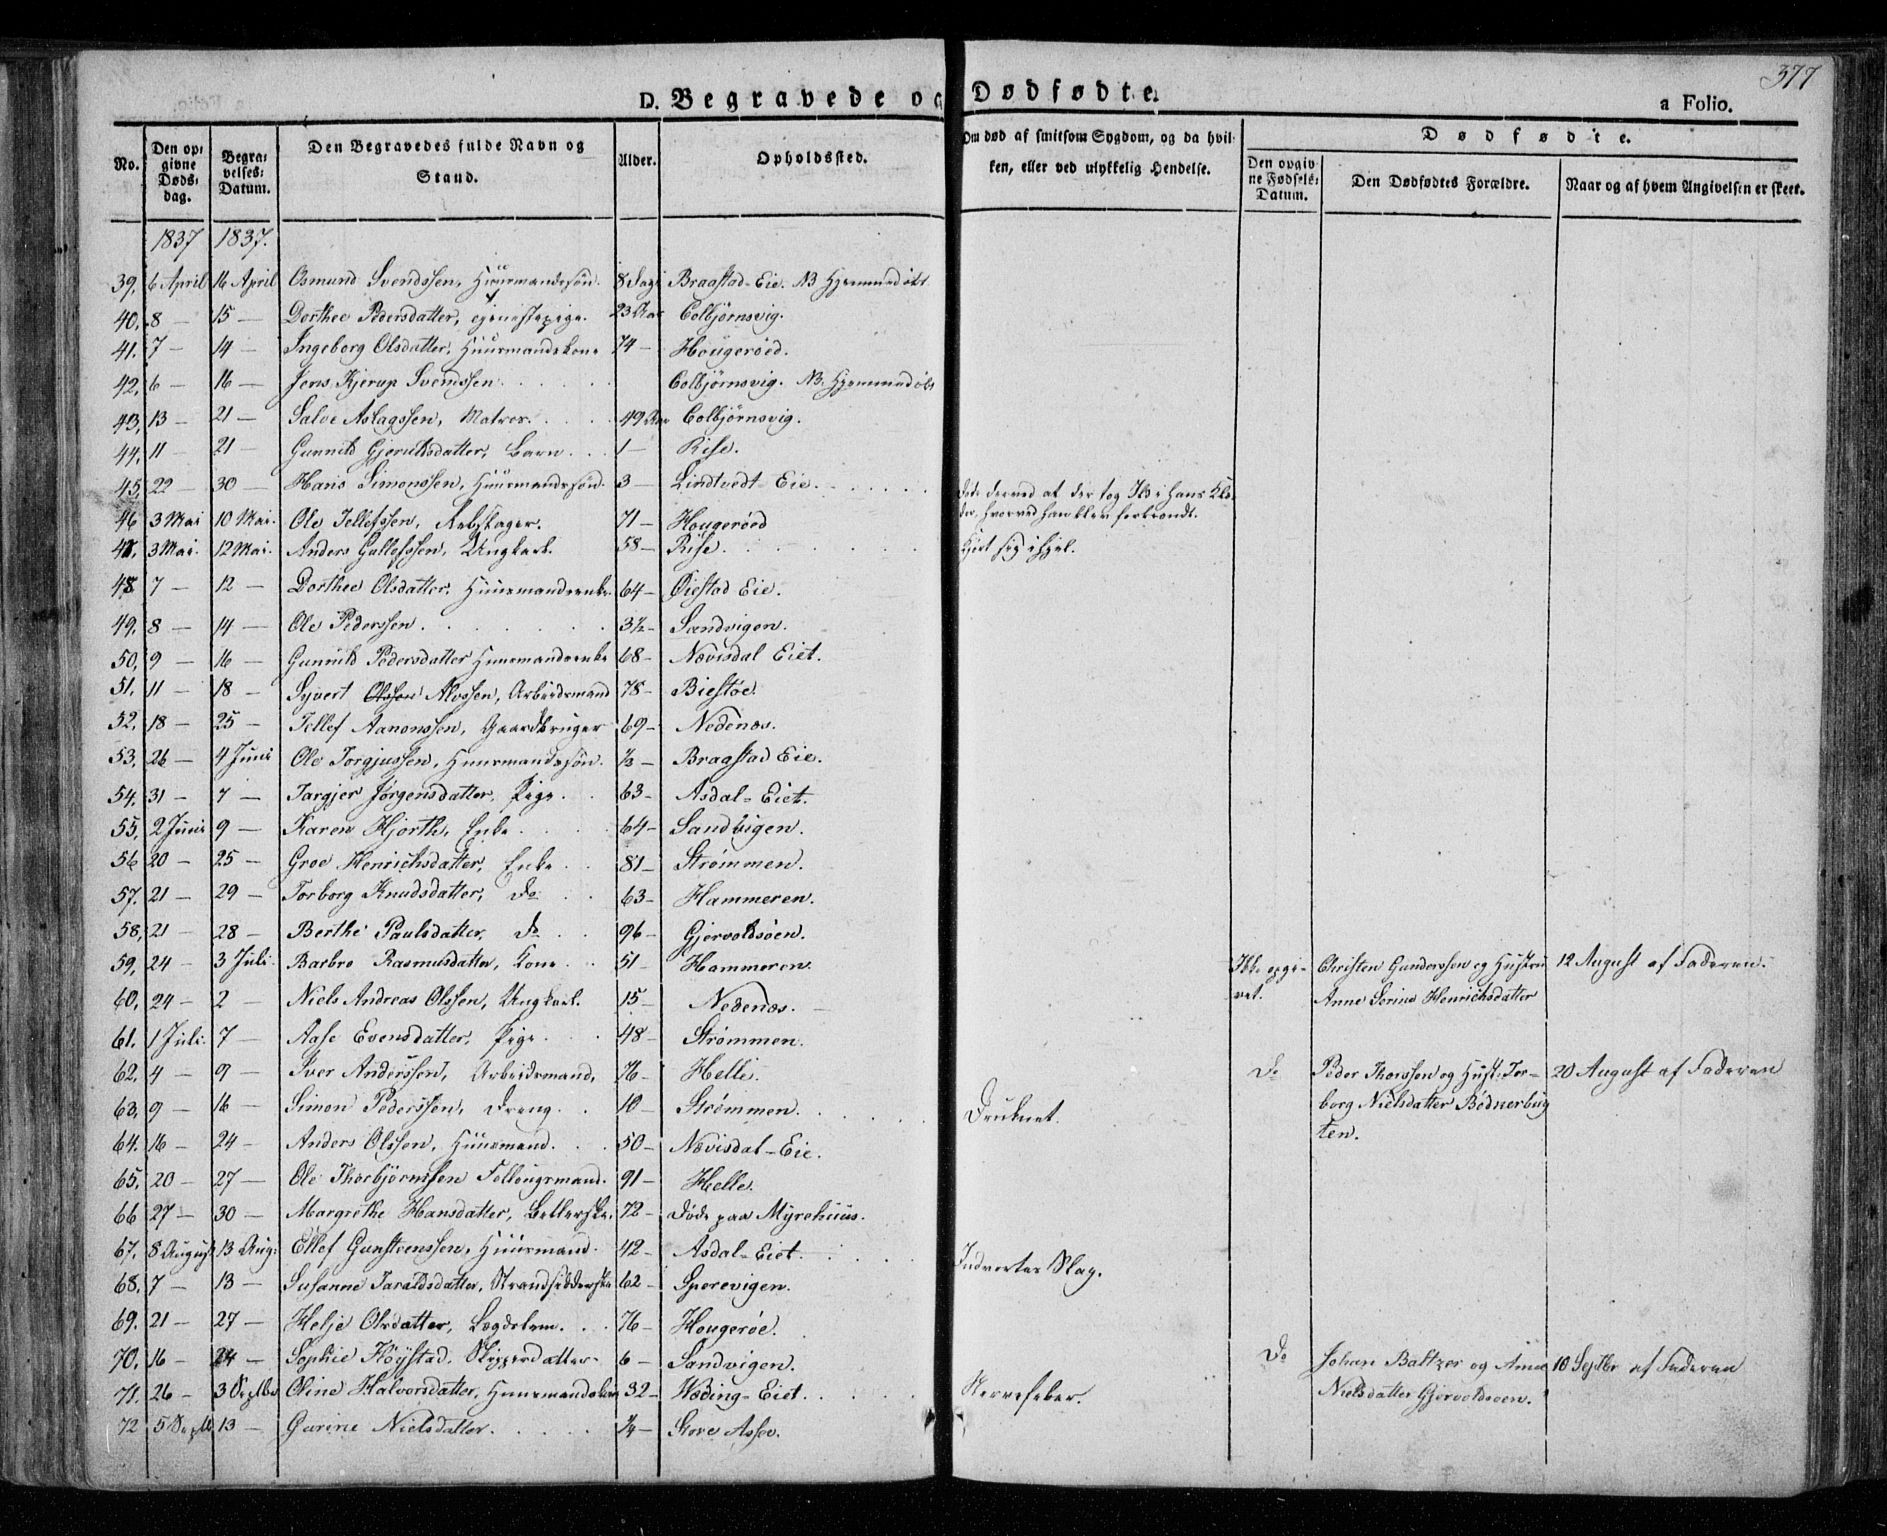 377
D. Begravede og Dødfødte.
a Folio.
No. | Den opgivne Døds-dag. | Begravelses-Datum. | Den Begravedes fulde Navn og Stand. | Alder. | Opholdssted. | Om død af smitsom Sygdom, og da hvilken, eller ved ulykkelig Hendelse. | Dødfødte. | Den opgivne Fødsels-Datum. | Den Dødfødtes Forældre. | Naar og af hvem Angivelsen er skeet.
1837 1837.
39. 6 April 16 April Osmund Svendssen, Huusmandssøn. 8 Dage Bragstad-Eie. NB Hjemmedøbt
40. 8 — 15 — Dorthee Pedersdatter, 23 Aar Colbjørnsvig.
41. 7 — 14 — Ingeborg Olsdatter, Huusmandskone 74 — Hougerøed.
42. 6 — 16 — Jens Kjerup Svendssen Colbjørnsvig. NB. Hjemmedøbt
43. 13 — 21 — Salve Aslagssen, Matros. 49 Aar Colbjørnsvig.
44. 11 — 21 — Gunnild Gjeruldsdatter, Barn 1 — Rise.
45. 22 — 30 — Hans Simonssen, Huusmandssøn. 3 — Lindtvedt Eie. Døde derved at der tog Ild i hans Klæ-
der, hvorved han blev forbrændt.
46 3 Mai 10 Mai. Ole Tellefssen, 71 — Hougerøed
47. 3 Mai. 12 Mai. Anders Gullefssen, Ungkarl. 58 — Rise. sig ihjel.
48 7 — 12 — Dorthee Olsdatter, Huusmandsenke 64 — Øiestad Eie.
49. 8 — 14 — Ole Pederssen. 3½ — Sandvigen.
50. 9 — 16 — Gunnild Pedersdatter Huusmandsenke 68 — Nævisdal Eiet.
51. 11 — 18 — Syvert Olssen Alvssen, Arbeidsmand 78 — Biestøe.
52. 18 — 25 — Tellef Aanonssen, Gaardbruger 69 — Nedenæs.
53. 26 — 4 Juni Ole Torgjussen, Huusmandssøn. ½ — Bragstad Eie.
54. 31 — 7 — Targjer Jørgensdatter, Pige. 63 — Asdal-Eiet.
55. 2 Juni 9 — Karen Hjorth, Enke 64 — Sandvigen.
56 20 — 25 — Groe Henrichsdatter, Enke 81 — Strømmen.
57. 21 — 29 — Torborg Knudsdatter, Do 63 — Hammeren.
58. 21 — 28 — Berthe Paulsdatter, do 96 — Gjervoldsøen.
59. 24 — 3 Juli. Barbro Rasmusdatter, Kone 51 — Hammeren. Ikke opgi-
vet. Christen Gunderssen og Hustru 12 August af Faderen.
Anne Serine Henrichsdatter
60. 24 — 2 — Niels Andreas Olssen, Ungkarl. 15 — Nedenæs.
61. 1 Juli. 7 — Aase Evensdatter, Pige. 48 — Strømmen.
62. 4 — 9 — Iver Anderssen, Arbeidsmand, 76 — Helle. Do Peder Thorssen og Hust: Tor- 20 August af Faderen
borg Nielsdatter Bødkerbug
ten.
63. 9 — 16 — Simon Pederssen, Dreng. 10 — Strømmen. Druknet.
64. 16 — 24 — Anders Olssen, Huusmand. 50 — Nævisdal-Eie.
65. 20 — 27 — Ole Thorbjørnssen Føllougsmand. 91 — Helle.
66 27 — 30 — Margrethe Hansdatter, Betlerske. 72 — døde paa Myrehuus.
67. 8 August 13 Aug: Ellef Gunstenssen, Huusmand. 42 — Asdal-Eiet. Indvortes Slag.
68. 7 — 13 — Susanne Taraldsdatter, Strandsidderske 62 — Sperevigen.
69. 21 — 27 — Helje Olsdatter, Lægdslem. 76 — Hougerøe.
70. 16 — 24 — Sophie Høystad, Skipperdatter. 6 — Sandvigen. Do Johan Baltzer og Anne 10 Septbr af Faderen
Nielsdatter Gjervoldsøen.
71. 26 — 3 Septbr Oline Halvorsdatter, Huusmandskone 32 — Wæding-Eiet. Nervefeber.
72 5 Septb 13 — Gurine Nielsdatter. ¼ — Store Assev.